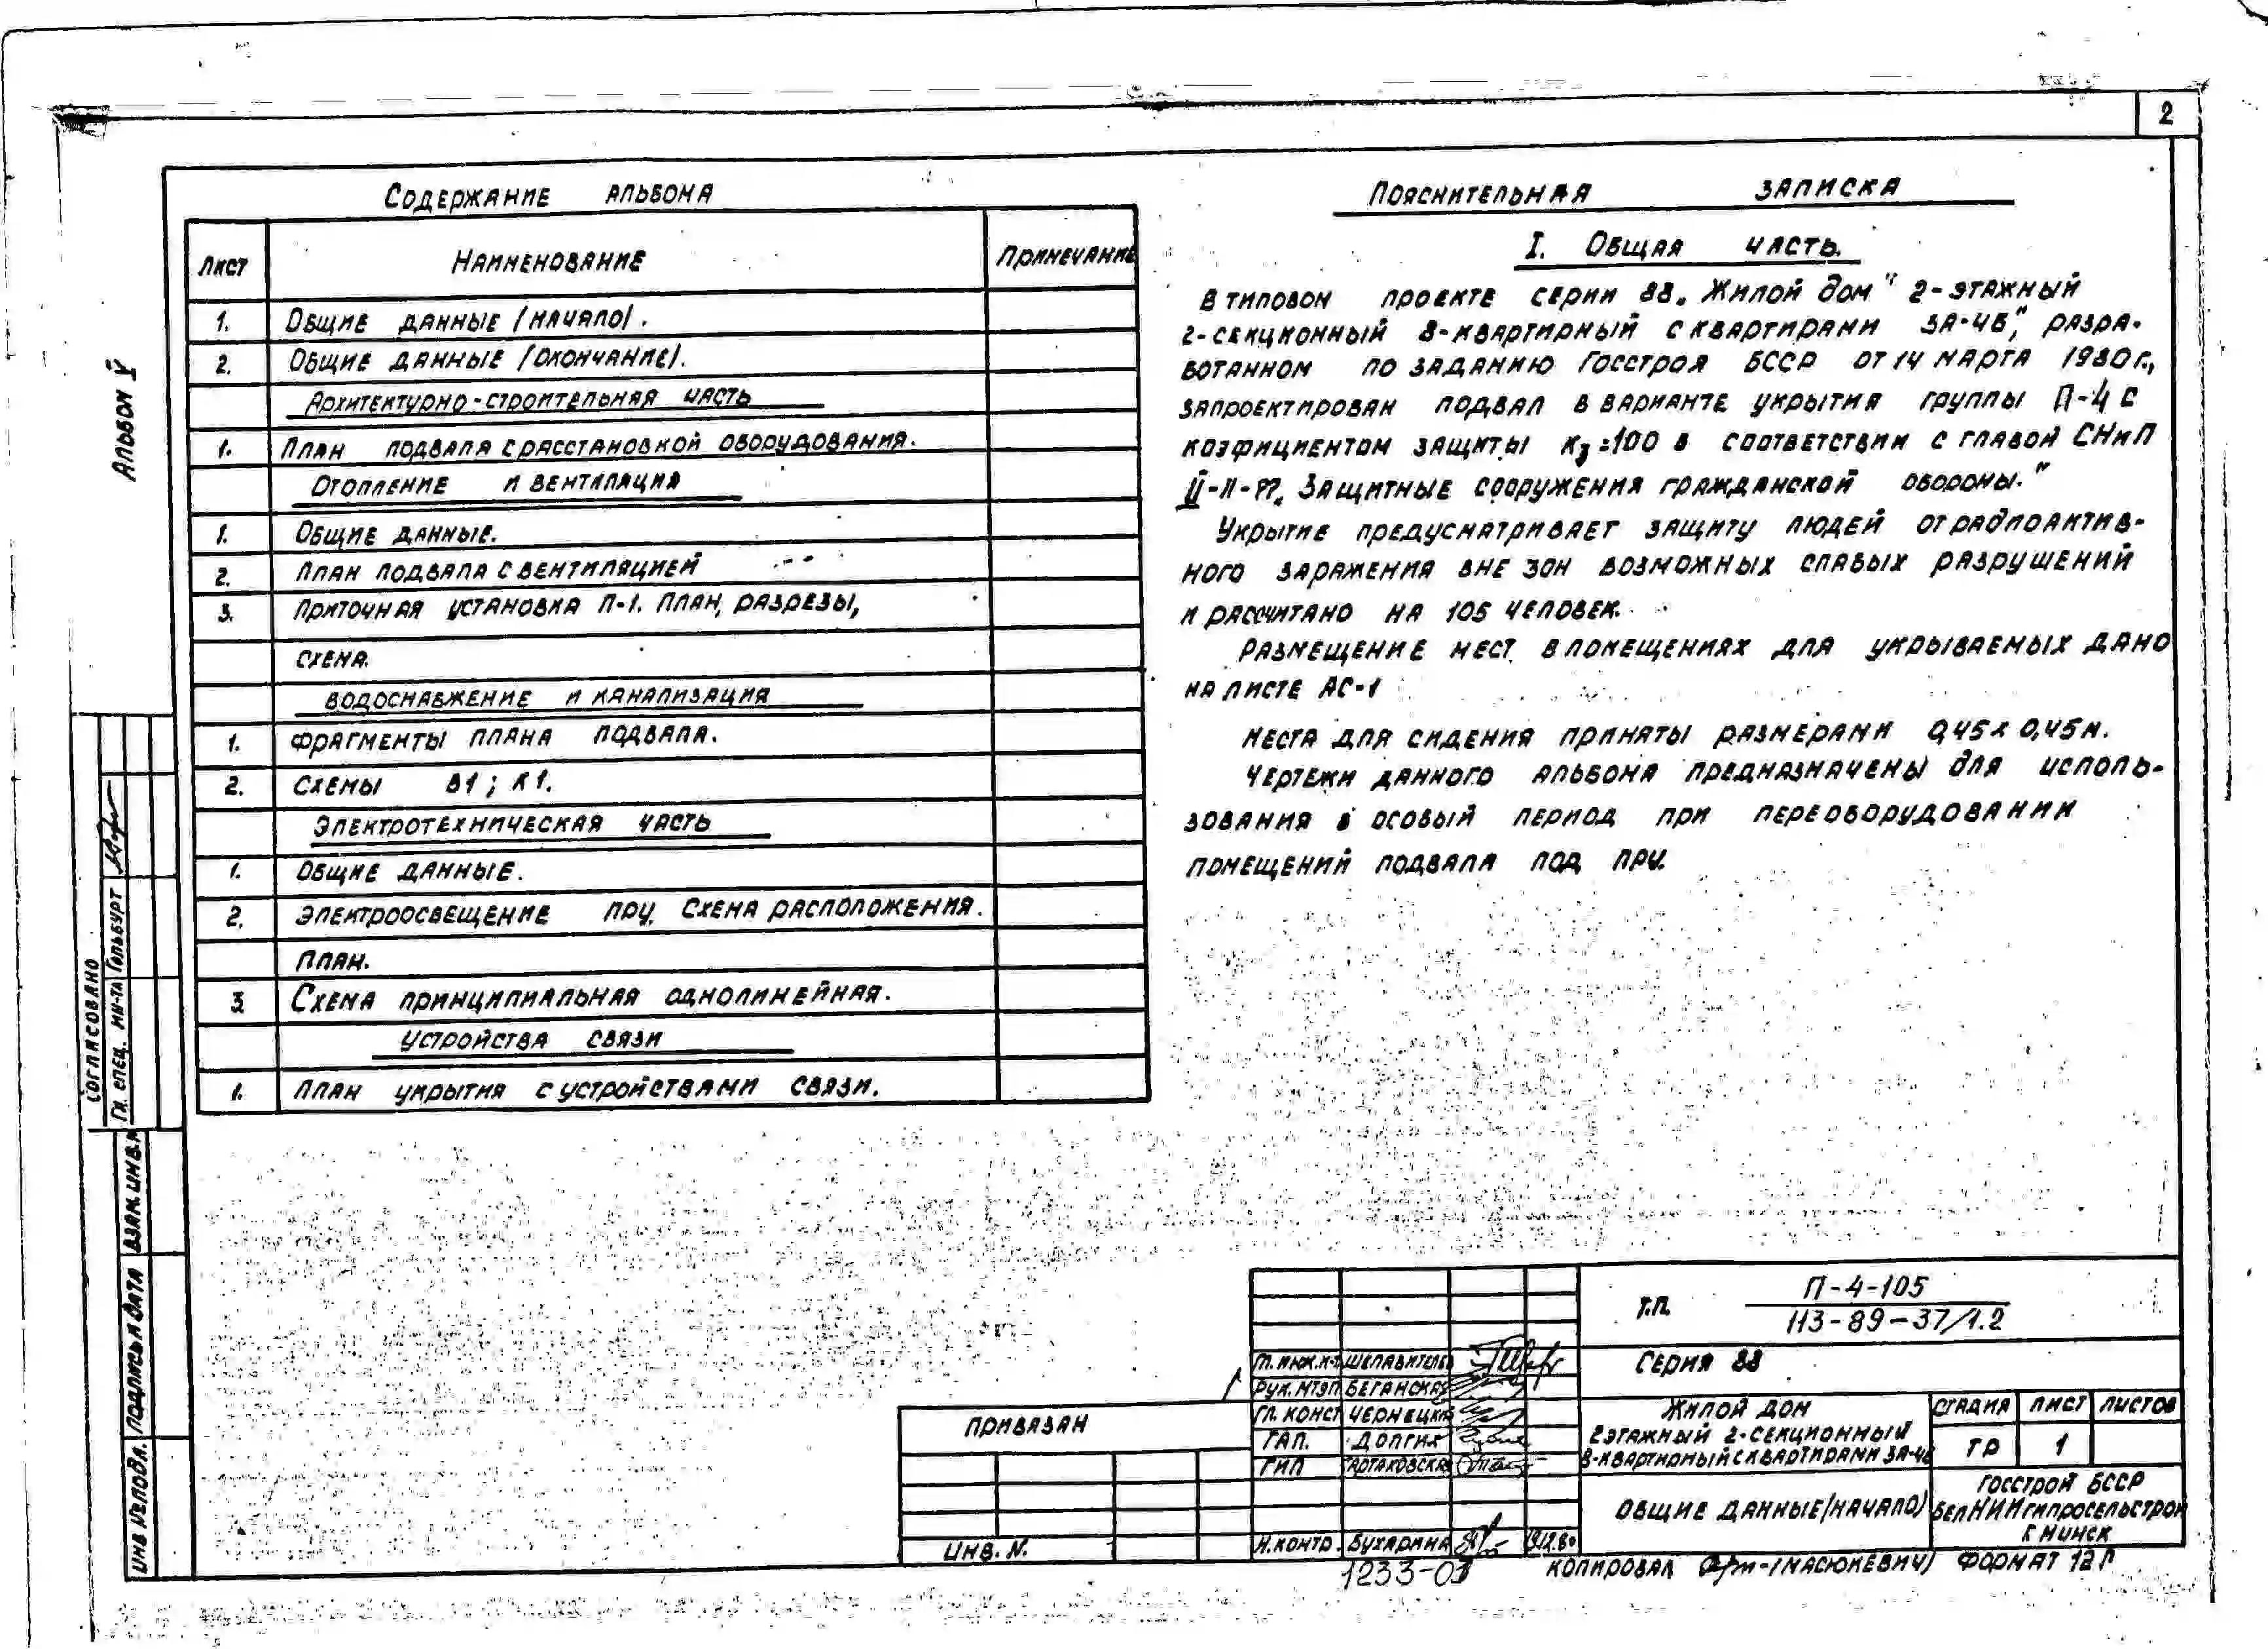 2
Альбом V
Содержание альбома
Лист Наименование Примечание
1. Общие данные /начало/.
2. Общие данные /окончание/.
Архитектурно-строительная часть
1. План подвала с расстановкой оборудования.
Отопление и вентиляция
1. Общие данные.
2. План подвала с вентиляцией
3. Приточная установка П-1. План, разрезы,
схема.
Водоснабжение и канализация
1. Фрагменты плана подвала.
2. Схемы В1; К1.
Электротехническая часть
1. Общие данные.
2. Электроосвещение ПРУ. Схема расположения.
План.
3 Схема принципиальная однолинейная.
Устройства связи
1. План укрытия с устройствами связи.
Пояснительная записка
I. Общая часть.
В типовом проекте серии 88 „Жилой дом" 2-этажный
2-секционный 8-квартирный с квартирами 3А-4Б", разра-
ботанном по заданию Госстроя БССР от 14 марта 1980г.,
запроектирован подвал в варианте укрытия группы П-4 с
коэфициентом защиты Кз=100 в соответствии с главой СНиП
II-11-77 „Защитные сооружения гражданской обороны."
Укрытие предусматривает защиту людей от радиоактив-
ного заражения вне зон возможных слабых разрушений
и рассчитано на 105 человек.
Размещение мест в помещениях для укрываемых дано
на листе АС-1
Места для сидения приняты размерами 0,45х0,45м.
Чертежи данного альбома предназначены для исполь-
зования в особый период при переоборудовании
помещений подвала под ПРУ.
Согласовано
Гл. спец. ин-та Гольбурт
Инв № подл. Подпись и дата Взам. инв. №
Привязан
Инв. N.
Гл. инж. и-та Шепавителев
Рук. МТЭП Беганская
Гл. конст Чернецкий
ГАП. Долгих
ГИП Тартаковская
Н.контр. Бухарина
Т.П. П-4-105
113-89-37/1.2
Серия 88
Жилой дом
2этажный 2-секционный
8-квартирный с квартирами 3А-4Б
Стадия Лист Листов
ТР 1
Общие данные/начало/
Госстрой БССР
БелНИИгипросельстрой
г. Минск
1233-05 Копировал /Масюкевич/ Формат 12Г